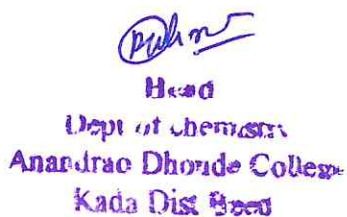 Head
Dept of Chemistry
Anandrao Dhonde College
Kada Dist Beed